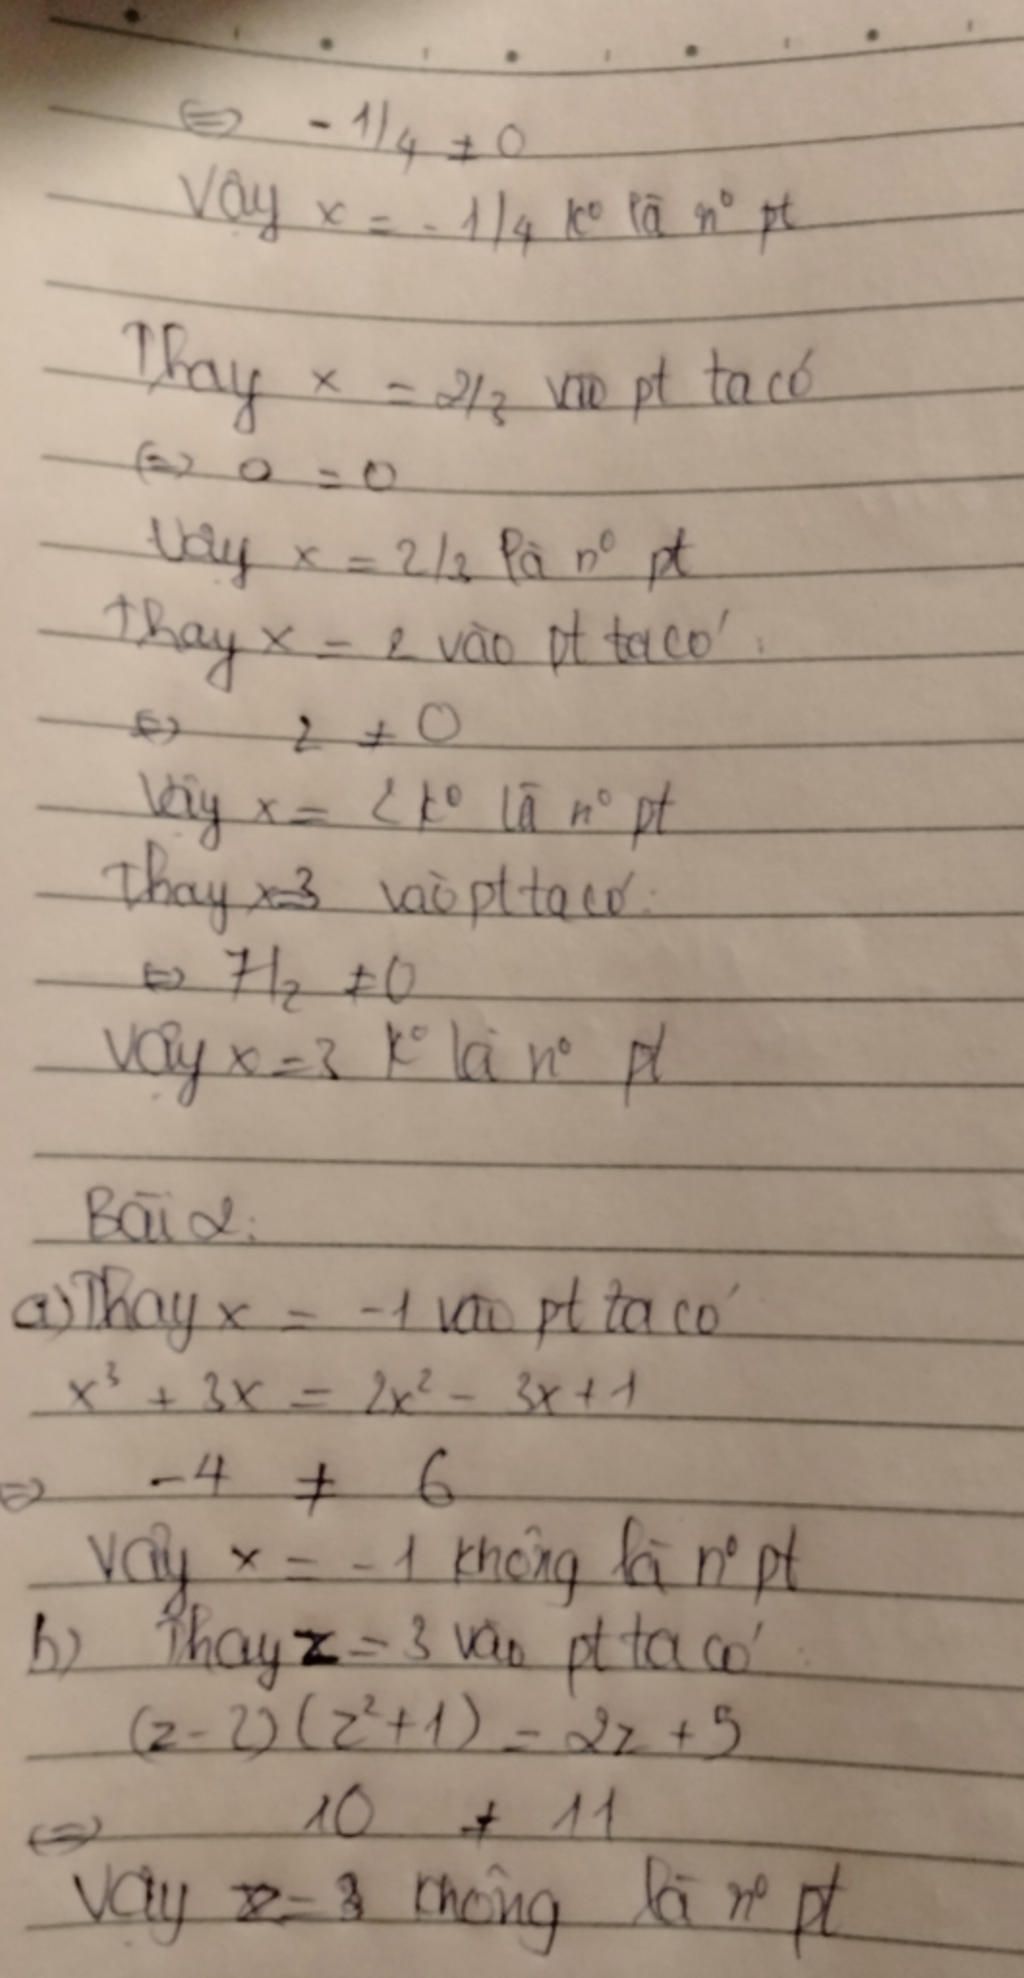 ⇔ - 1/4 ≠ 0
Vậy x = - 1/4 k° là n° pt
Thay x = 2/3 vào pt ta có
⇔ 0 = 0
Vậy x = 2/3 là n° pt
Thay x = 2 vào pt ta có:
⇔ 2 ≠ 0
Vậy x = 2 k° là n° pt
Thay x=3 vào pt ta có:
⇔ 7/2 ≠ 0
Vậy x = 3 k° là n° pt
Bài 2:
a) Thay x = -1 vào pt ta có
x³ + 3x = 2x² - 3x + 1
⇔ -4 ≠ 6
Vậy x = -1 không là n° pt
b) Thay z = 3 vào pt ta có:
(z - 2)(z² + 1) = 2z + 5
⇔ 10 ≠ 11
Vậy z = 3 không là n° pt